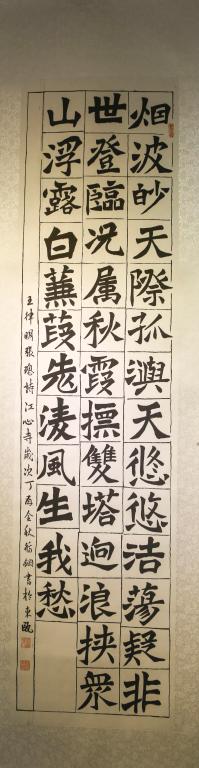 烟波眇天際孤嶼天悠悠浩蕩疑非
世登臨况属秋霞摽雙塔迥浪挾衆
山浮露白蒹葭老淩風生我愁
五律明張璁詩江心寺歲次丁酉金秋
書於東甌